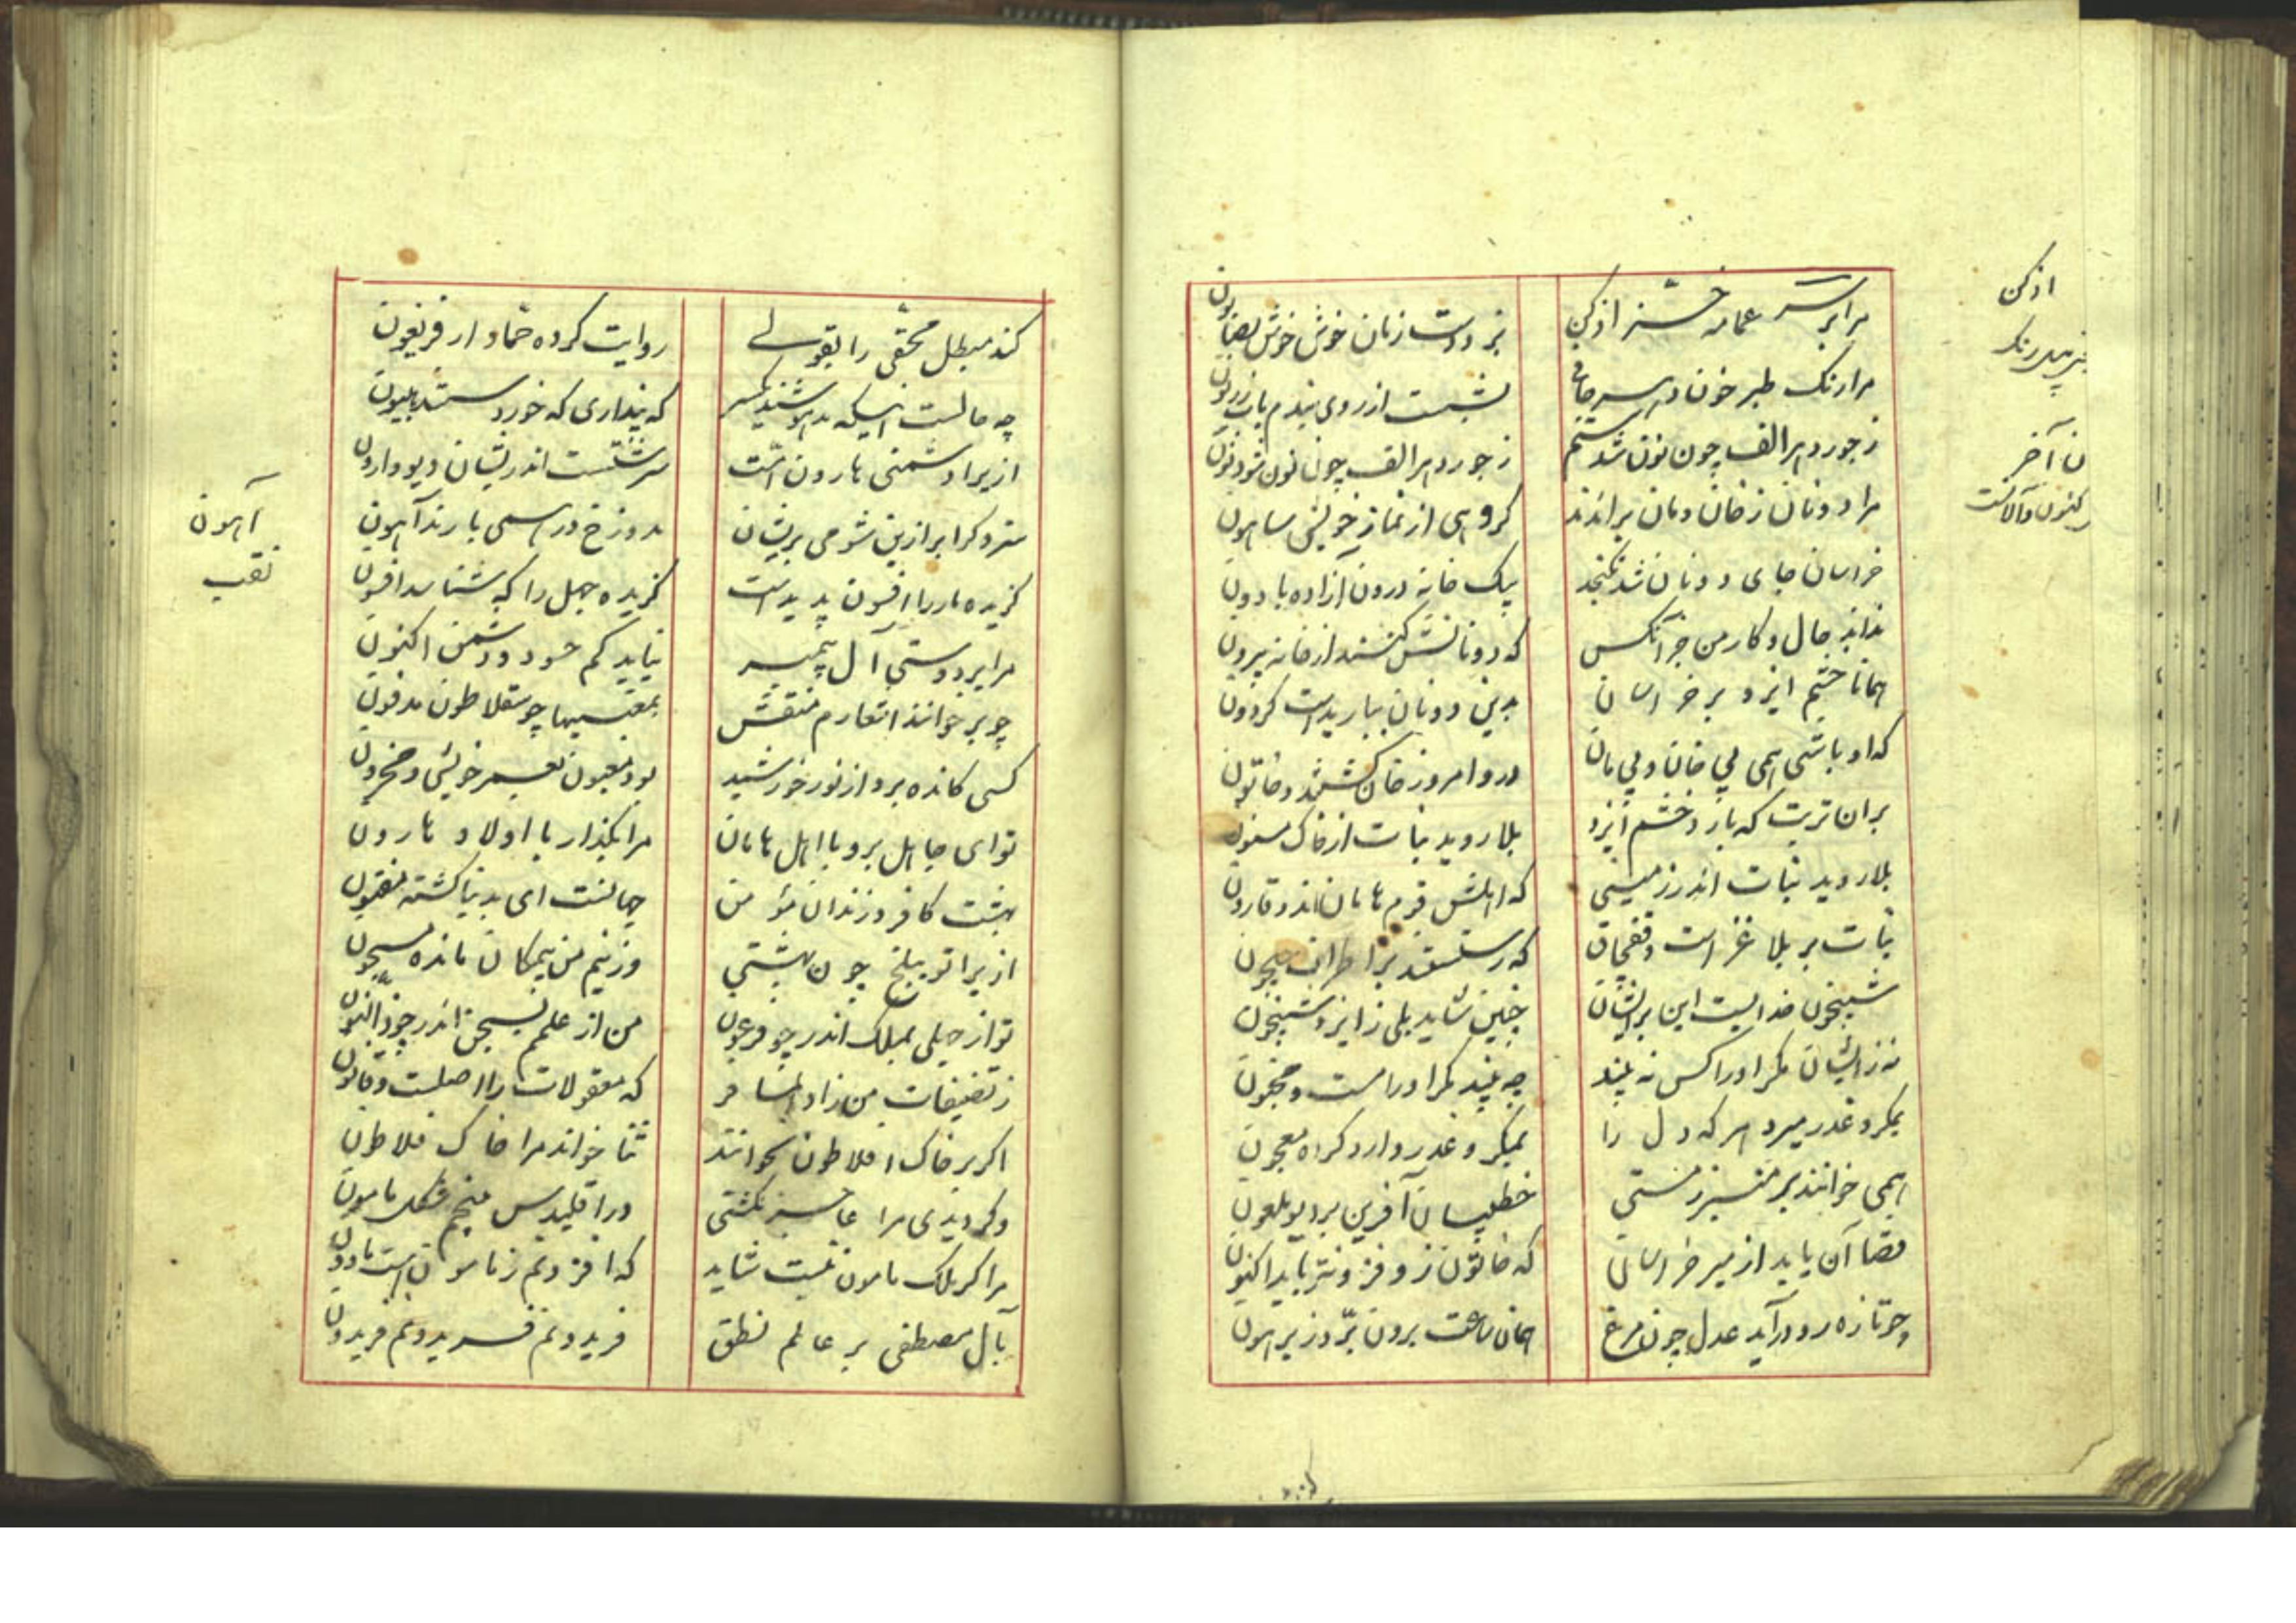 مرا بر سر عمامه خز ادکن
بزد دست زمان خوش خوش بصابون
مرا رنگ طبرخون دهر جافی
بشست از روی بندم باب زریون
ز جور دهر الف چون نون شدستم
ز جور دهر الف چون نون شود نون
مرا دونان ز خان و مان براندند
گروهی از نماز خویش ساهون
خراسان جای دونان شد نگنجد
بیک خانه درون آزاده با دون
نداند حال و کار من جز آنکس
که دونانش کنند از خانه بیرون
همانا خشم ایزد بر خراسان
بدین دونان بباریدست گردون
که اوباشی همی بی خان و بی مان
درو امروز خان گشتند و خاتون
بران تربت که بارد خشم ایزد
بلا روید نبات از خاک مسنون
بلا روید نبات اندر زمینی
که اهلش قوم هامان اند و قارون
نبات پر بلا غز است و قفچاق
که رستستند بر اطراف جیحون
شبیخون خدایست این بر ایشان
چنین شاید بلی ز ایزد شبیخون
نه زایشان مکر او را کس نه بیند
چه بیند مکر او را مست و مجنون
بمکر و غدر میرد هر که دل را
بمکر و غدر دارد گراه معجون
همی خوانند بر منبر ز مستی
خطیبان آفرین بر دیو ملعون
قضا آن یابد از میر خراسان
که خاتون زو فزونتر یابد اکنون
چو تازه رو درآید عدل چون مرغ
همان ساعت برون پرد ز پرهون
ادکن
آهون
نقب
کند مبطل محقی را بقولی
روایت کرده حماد از فریغون
چه حالست اینکه مدهوشند یکسر
که پنداری که خوردستند هپیون
ازیرا دشمنی هارون است
سرشتست اندر ایشان دیو وارون
سزد گر ابر ازین شومی بریشان
بدوزخ در همی بارند آهون
گزیده مار را افسون پدیدست
گزیده جهل را که شناسد افسون
مرا بر دوستی آل پیمبر
نباید کم حسود و دشمن اکنون
چو بر خوانند اشعارم منقش
بمعنیها چو سقلاطون مدفون
کسی کانده برد از نور خورشید
بود معیون بعیر خویش و محزون
تو ای جاهل برو با اهل هامان
مرا بگذار با اولاد هارون
بهشت کافر و زندان مؤمن
جهانست ای بدنیا گشته مفتون
ازیرا تو ببلخ چون بهشتی
وزینم من بیمگان مانده مسجون
تو از جهلی بملک اندر چو فرعون
من از علمم بسجن اندر چو ذوالنون
ز تصنیفات من زاد المسافر
که معقولات را اصلست و قانون
اگر بر خاک افلاطون بخوانند
ثنا خواند مرا خاک فلاطون
وگر دیدی مرا عاجز نگشتی
در اقلیدس منجم شکل مامون
مرا گر ملک مامون نیست شاید
که افزونم ز مامون است مامون
بآل مصطفی بر عالم نطق
فریدونم فریدونم فریدون